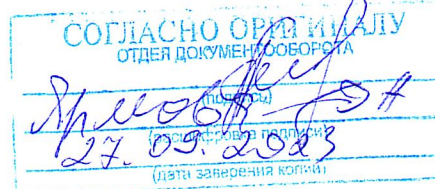 СОГЛАСНО ОРИГИНАЛУ
ОТДЕЛ ДОКУМЕНТООБОРОТА
(подпись)
(расшифровка подписи)
27.09.2023
(дата заверения копии)